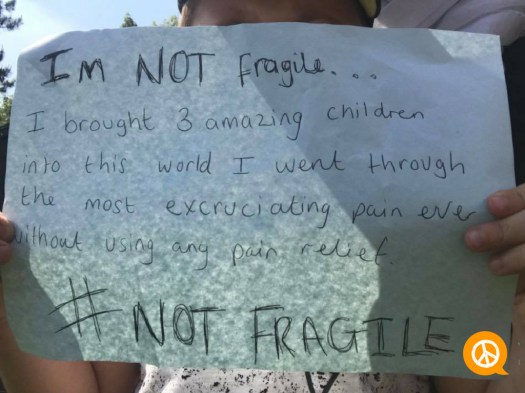 I'm NOT Fragile....
I brought 3 amazing children
into this world I went through
the most excruciating pain ever
without using any pain relief.
# NOT FRAGILE